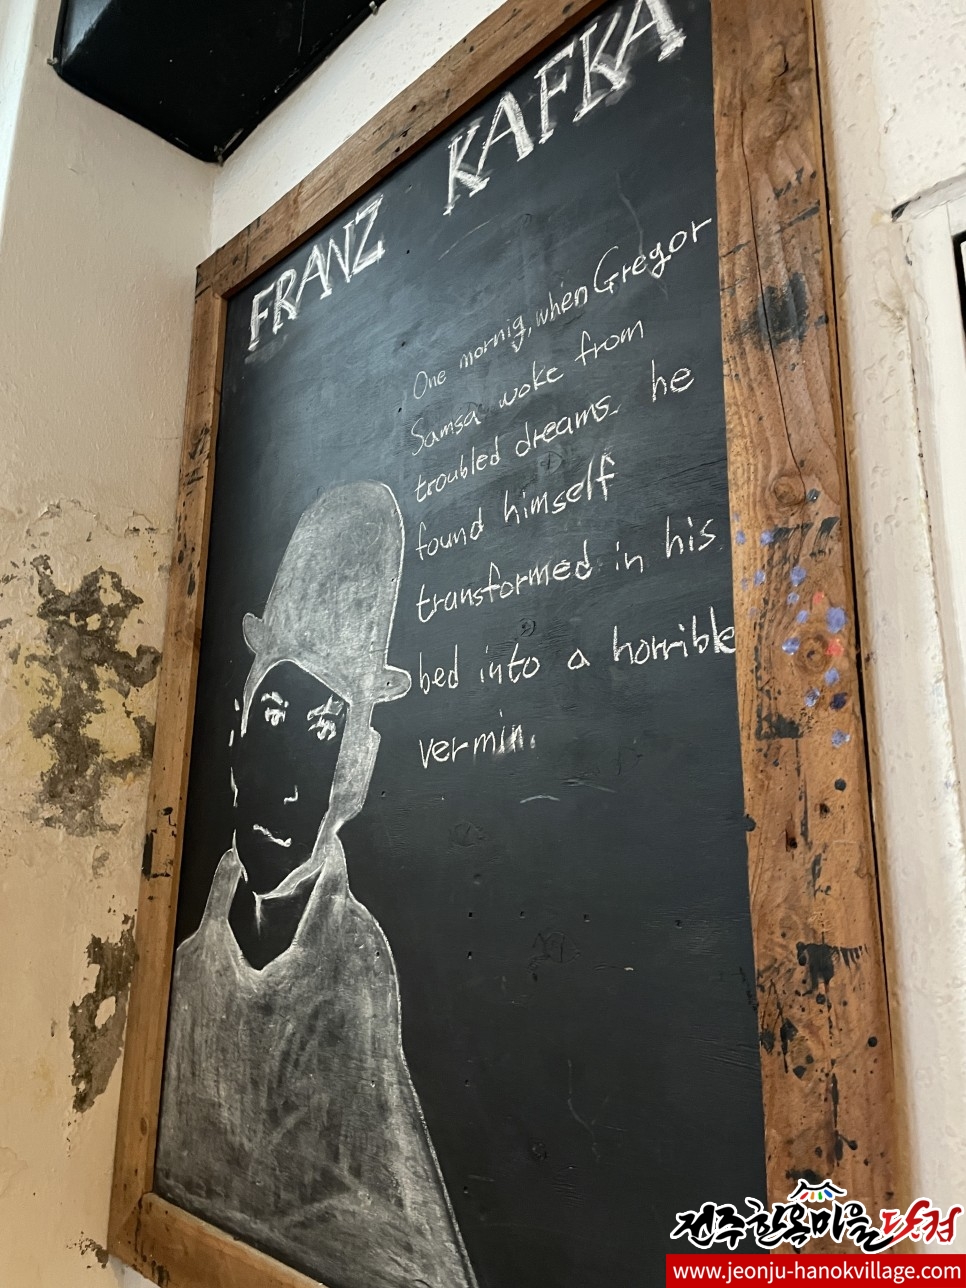 FRANZ KAFKA
One mornig, when Gregor
Samsa woke from
troubled dreams. he
found himself
transformed in his
bed into a horrible
vermin.
전주한옥마을닷컴
www.jeonju-hanokvillage.com